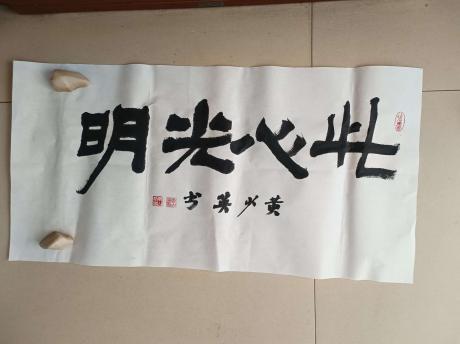 此心光明
黄少英书